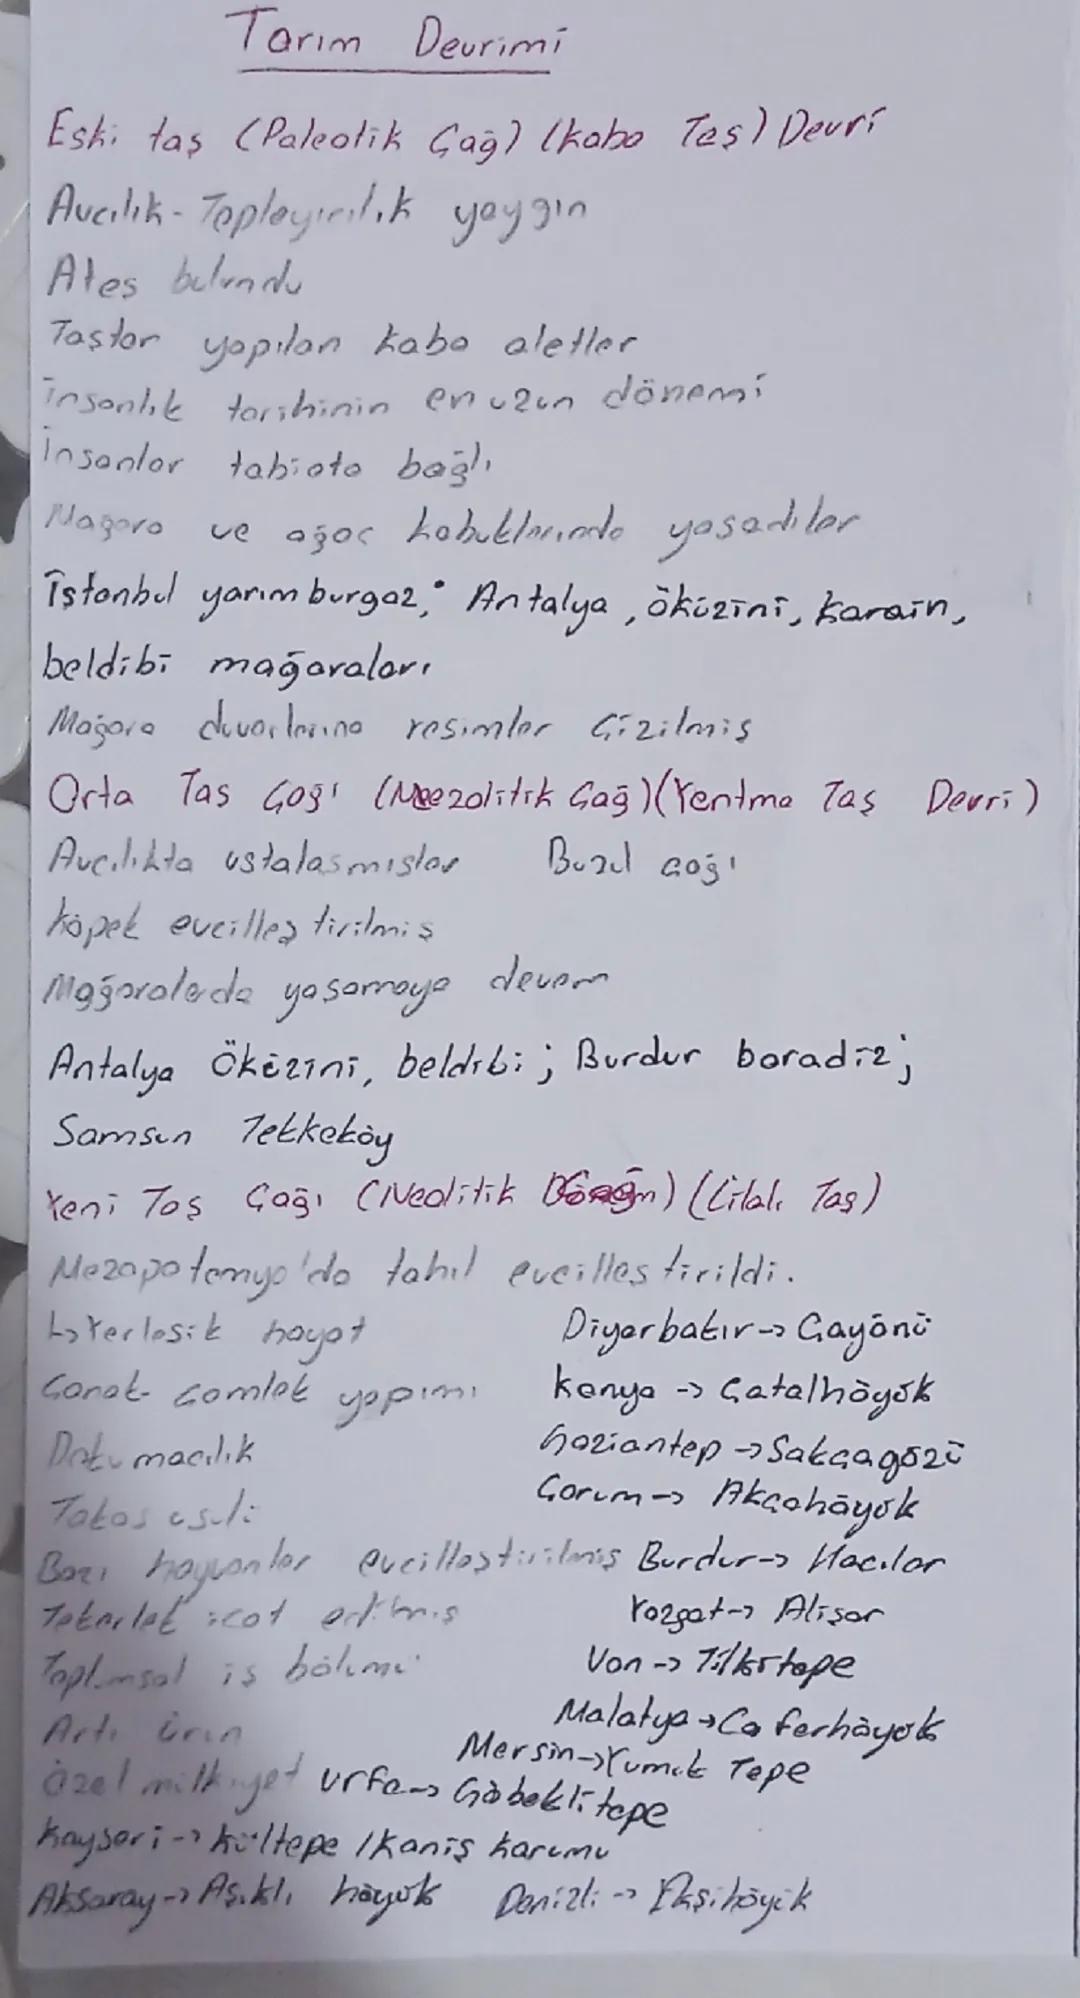 Tarım Devrimi
Eski taş (Paleotik Çağ) (kaba Taş) Devri
Avcılık-Toplayıcılık yaygın
Ateş bulundu
Taştan yapılan kaba aletler
İnsanlık tarihinin en uzun dönemi
İnsanlar tabiata bağlı
Mağara ve ağaç kabuklarında yaşadılar
İstanbul yarımburgaz; Antalya, öküzini, karain,
beldibi mağaraları
Mağara duvarlarına resimler çizilmiş
Orta Taş Çağı (Mezolitik Çağ)(Yontma Taş Devri)
Avcılıkta ustalaşmışlar Buzul çağı
köpek evcilleştirilmiş
Mağaralarda yaşamaya devam
Antalya Öküzini, beldibi; Burdur baradiz;
Samsun Tekkeköy
Yeni Taş Çağı (Neolitik Dönem) (Cilalı Taş)
Mezapotamya'da tahıl evcilleştirildi.
↳Yerleşik hayat Diyarbakır→Çayönü
Çanak-çömlek yapımı Konya→Çatalhöyük
Dokumacılık Gaziantep→Sakçagözü
Takas usulü Çorum→Akçahöyük
Bazı hayvanlar evcilleştirilmiş Burdur→Hacılar
Tekerlek icat edilmiş Yozgat→Alişar
Toplumsal iş bölümü Van→Tilkitepe
Artı ürün Malatya→Caferhöyük
Mersin→Yumuk Tepe
özel mülkiyet Urfa→Göbeklitepe
Kayseri→Kültepe/Kaniş karumu
Aksaray→Aşıklı höyük Denizli→Ekşihöyük